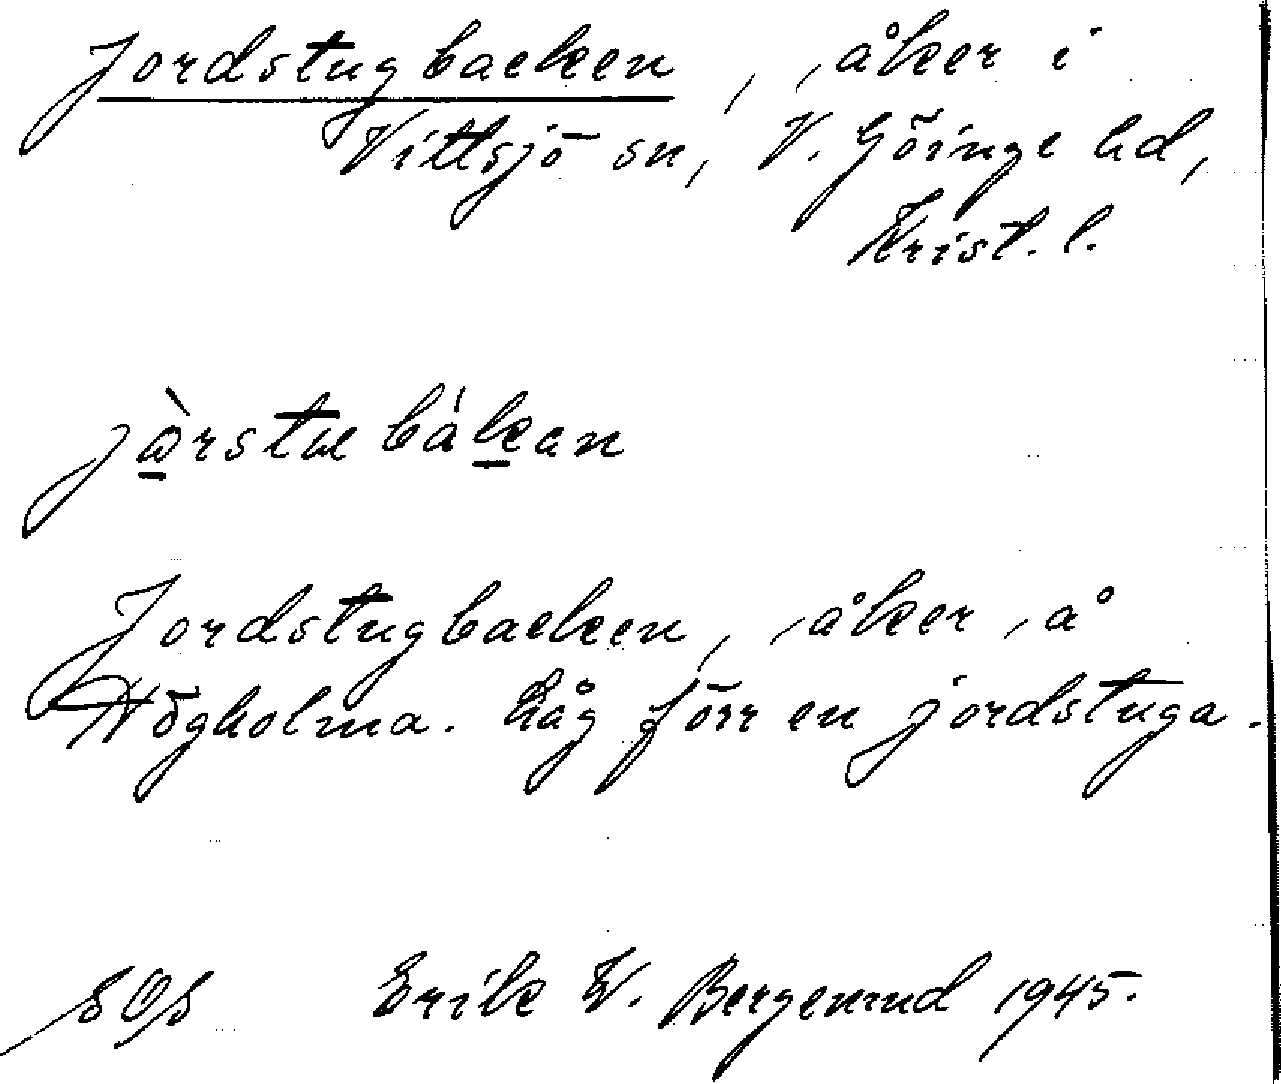 Jordstugbacken, åker i
Vittsjö sn, V. Göinge hd,
Krist. l.
Jordstugbacken, åker å
Högholma. Låg förr en jordstuga.
SOS Erik W. Bergenrud 1945.